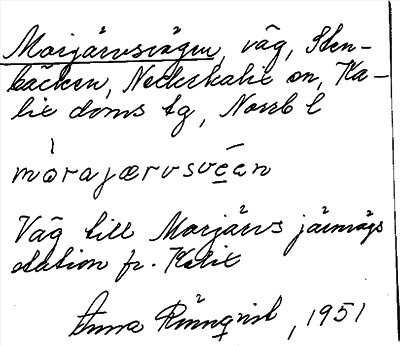 Morjärvsvägen, väg, Sten-
bäcken, Nederkalix sn, Ka-
lix doms tg, Norrb l
mòrajærvsvēn
Väg till Morjärvs järnvägs
station fr. Kalix
Anna Rönnqvist, 1951